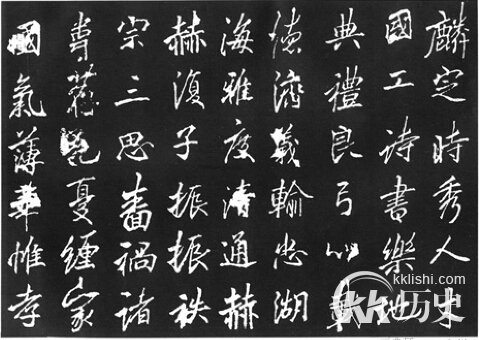 麟定時秀人才
國工詩書樂地
典禮良弓以
濟義輸忠湖
海雅度清通赫
赫復子振振秩
宗三思蓄禍諸
憂纏家
國氣薄華帷孝
kklishi.com
KK历史